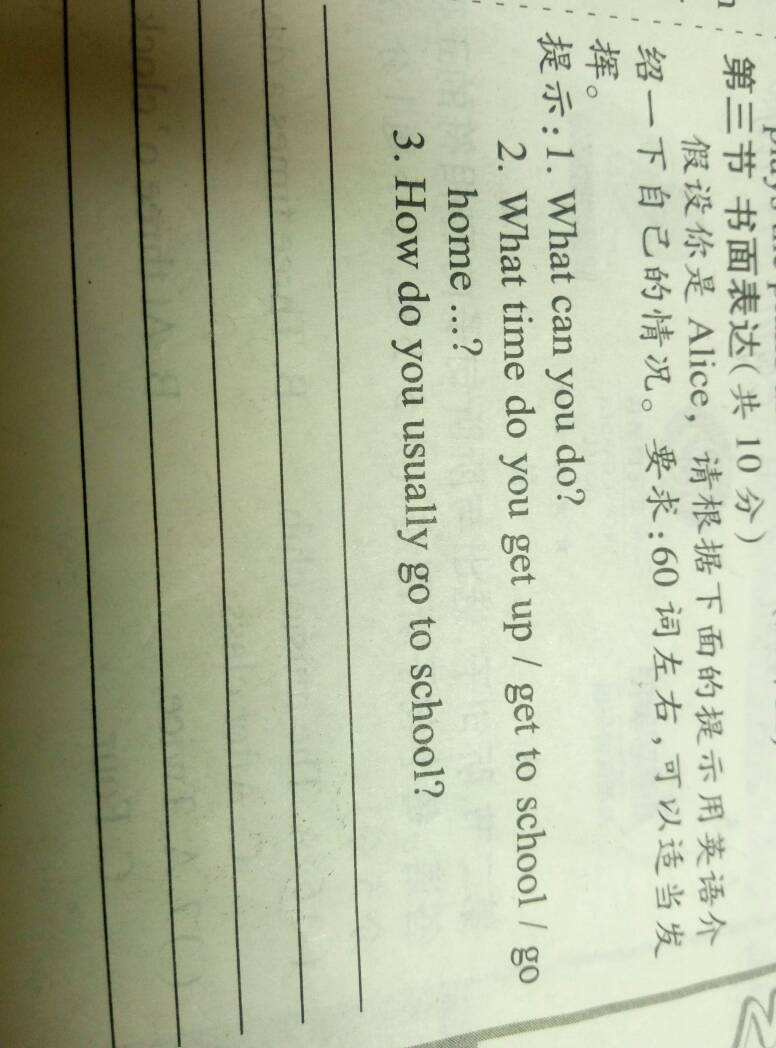 第三节 书面表达(共10分)
假设你是 Alice, 请根据下面的提示用英语介
绍一下自己的情况。要求:60 词左右,可以适当发
挥。
提示:1. What can you do?
2. What time do you get up / get to school / go
home ...?
3. How do you usually go to school?